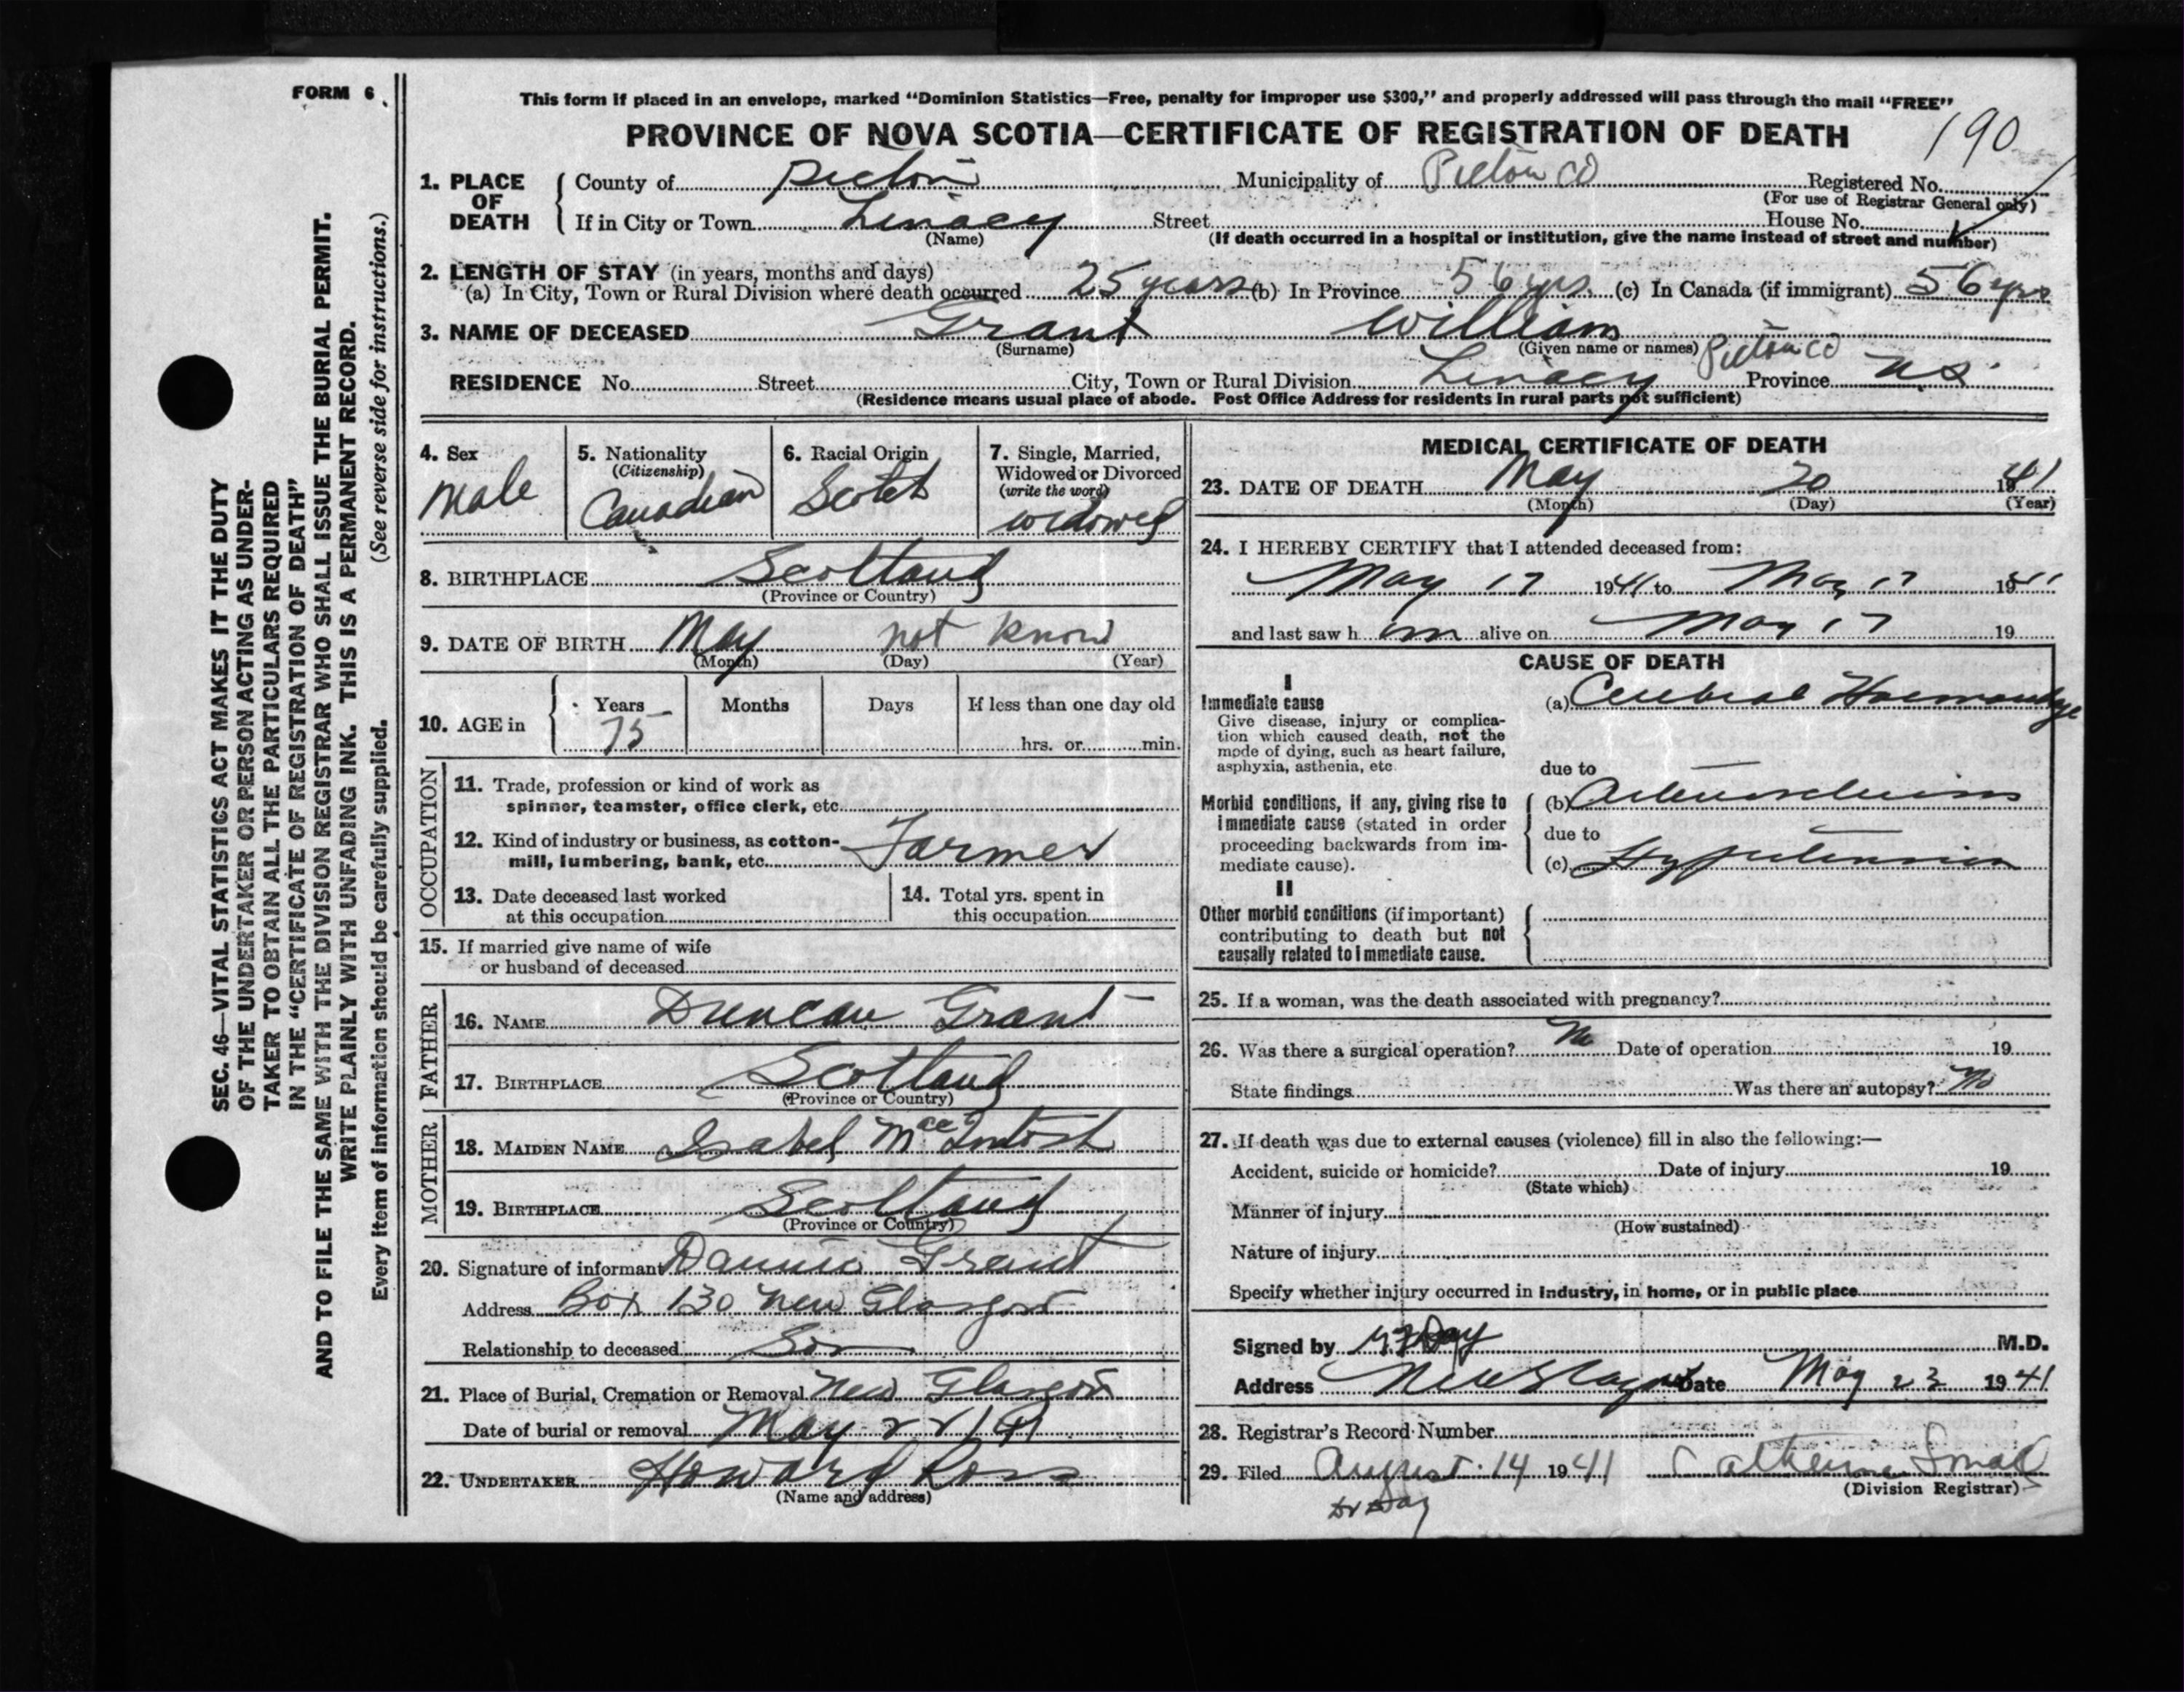 FORM 6
This form if placed in an envelope, marked “Dominion Statistics—Free, penalty for improper use $300,” and properly addressed will pass through the mail “FREE”
PROVINCE OF NOVA SCOTIA—CERTIFICATE OF REGISTRATION OF DEATH
190
1. PLACE OF DEATH { County of Pictou Municipality of Pictou Co Registered No.
(For use of Registrar General only)
If in City or Town Linacy Street House No.
(Name) (If death occurred in a hospital or institution, give the name instead of street and number)
2. LENGTH OF STAY (in years, months and days)
(a) In City, Town or Rural Division where death occurred 25 years (b) In Province 56 yrs. (c) In Canada (if immigrant) 56 yrs
3. NAME OF DECEASED Grant William
(Surname) (Given name or names) Pictou Co
RESIDENCE No. Street City, Town or Rural Division Linacy Province N.S.
(Residence means usual place of abode. Post Office Address for residents in rural parts not sufficient)
4. Sex
Male
5. Nationality
(Citizenship)
Canadian
6. Racial Origin
Scotch
7. Single, Married,
Widowed or Divorced
(write the word)
widowed
8. BIRTHPLACE Scotland
(Province or Country)
9. DATE OF BIRTH May not know
(Month) (Day) (Year)
10. AGE in { Years Months Days If less than one day old
75 hrs. or min.
OCCUPATION
11. Trade, profession or kind of work as
spinner, teamster, office clerk, etc.
12. Kind of industry or business, as cotton-
mill, lumbering, bank, etc. Farmer
13. Date deceased last worked
at this occupation
14. Total yrs. spent in
this occupation
15. If married give name of wife
or husband of deceased
FATHER
16. NAME Duncan Grant
17. BIRTHPLACE Scotland
(Province or Country)
MOTHER
18. MAIDEN NAME Isabel MacIntosh
19. BIRTHPLACE Scotland
(Province or Country)
20. Signature of informant Dannie Grant
Address Box 130 New Glasgow
Relationship to deceased Son
21. Place of Burial, Cremation or Removal New Glasgow
Date of burial or removal May 22 1941
22. UNDERTAKER Howard Ross
(Name and address)
MEDICAL CERTIFICATE OF DEATH
23. DATE OF DEATH May 20 1941
(Month) (Day) (Year)
24. I HEREBY CERTIFY that I attended deceased from:
May 17 1941 to May 17 1941
and last saw him alive on May 17 19
CAUSE OF DEATH
I
Immediate cause
Give disease, injury or complica-
tion which caused death, not the
mode of dying, such as heart failure,
asphyxia, asthenia, etc.
(a) Cerebral Haemorrhage
due to
Morbid conditions, if any, giving rise to
immediate cause (stated in order
proceeding backwards from im-
mediate cause).
(b) Arteriosclerosis
due to
(c) Hypertension
II
Other morbid conditions (if important)
contributing to death but not
causally related to immediate cause.
25. If a woman, was the death associated with pregnancy?
26. Was there a surgical operation? No Date of operation 19
State findings Was there an autopsy? No
27. If death was due to external causes (violence) fill in also the following:—
Accident, suicide or homicide? Date of injury 19
(State which)
Manner of injury
(How sustained)
Nature of injury
Specify whether injury occurred in industry, in home, or in public place
Signed by Day M.D.
Address New Glasgow Date May 23 1941
28. Registrar's Record Number
29. Filed August 14 1941 Catherine Small
(Division Registrar)
Dr Day
SEC. 46—VITAL STATISTICS ACT MAKES IT THE DUTY
OF THE UNDERTAKER OR PERSON ACTING AS UNDER-
TAKER TO OBTAIN ALL THE PARTICULARS REQUIRED
IN THE “CERTIFICATE OF REGISTRATION OF DEATH”
AND TO FILE THE SAME WITH THE DIVISION REGISTRAR WHO SHALL ISSUE THE BURIAL PERMIT.
WRITE PLAINLY WITH UNFADING INK. THIS IS A PERMANENT RECORD.
Every item of information should be carefully supplied. (See reverse side for instructions.)